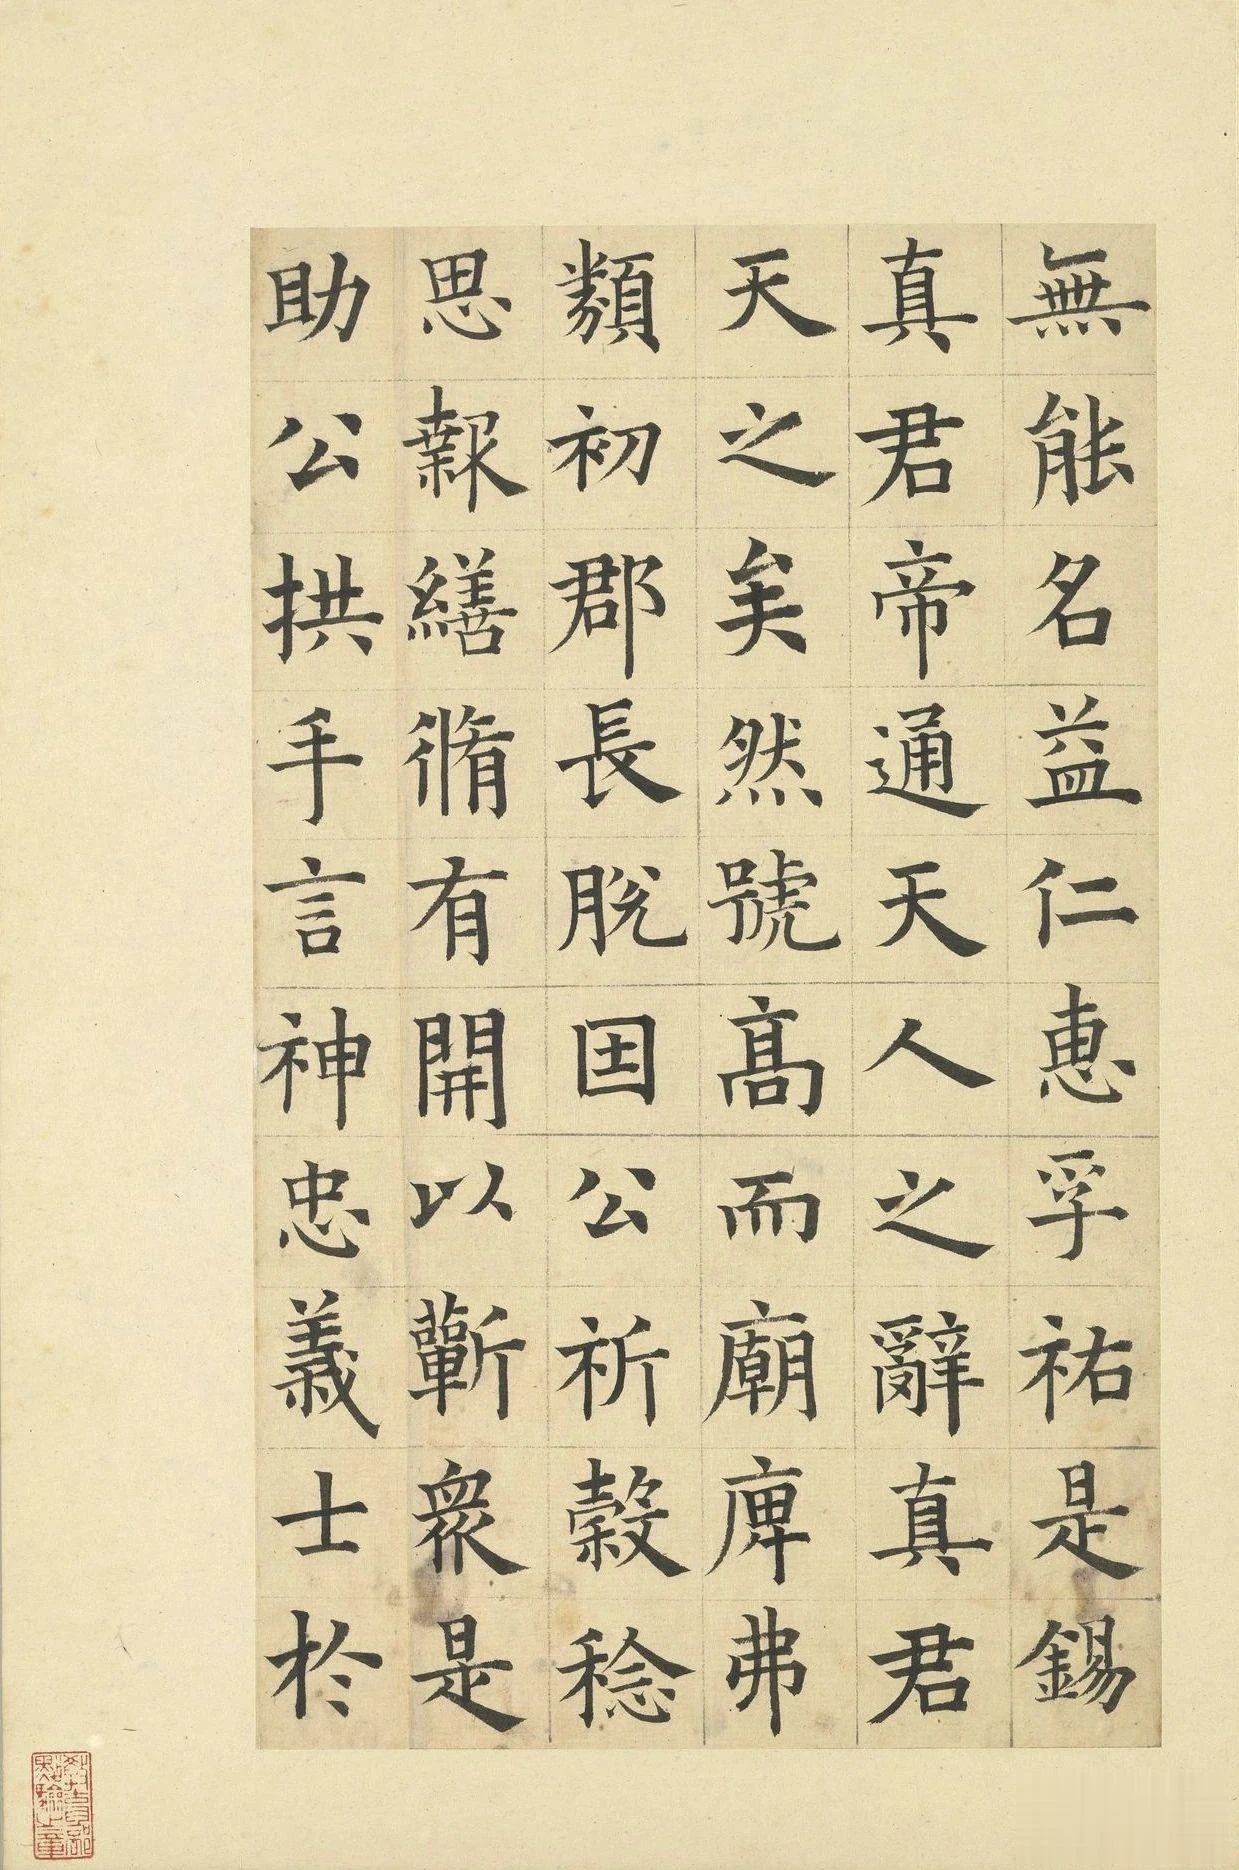 無能名益仁惠孚祐是錫
真君帝通天人之辭真君
天之矣然號高而廟庳弗
類初郡長脫因公祈穀稔
思報繕脩有開以蘄衆是
助公拱手言神忠義士於